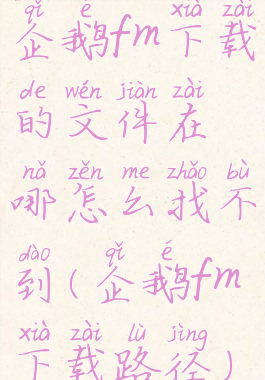 qǐ é xià zài
企鹅fm下载
de wén jiàn zài
的文件在
nǎ zěn me zhǎo bù
哪怎么找不
dào qǐ é
到(企鹅fm
xià zài lù jìng
下载路径)